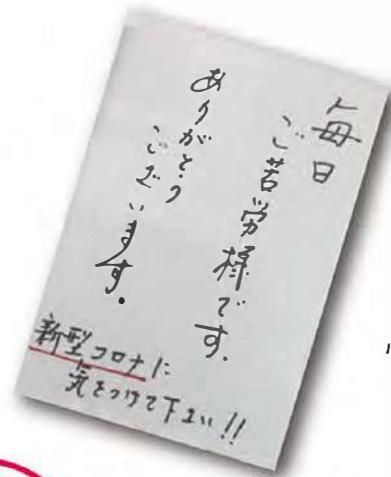 毎日
ご苦労様です。
ありがとう
ございます。
新型コロナに
気をつけて下さい!!